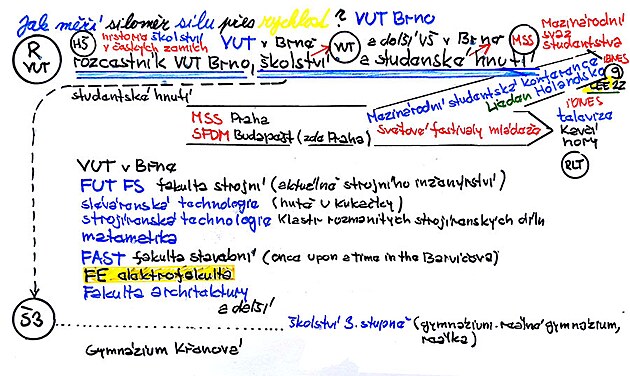 Jak měří siloměr sílu přes rychlost? VUT Brno
R VUT
HŠ historie školství v českých zemích VUT v Brně VUT a další VŠ v Brně MSS Mezinárodní svaz studentstva
rozcestník VUT Brno, školství a studenské hnutí
studentské hnutí
Mezinárodní studentská konference Leiden Holandsko
iDNES
9
CEE 22
MSS Praha
SFDM Budapešť (zde Praha)
Světové festivaly mládeže
iDNES
televize
Kavčí
hory
RLT
VUT v Brně
FUT FS fakulta strojní (aktuálně strojního inženýrství)
slévárenské technologie (hutě u Kukačky)
strojírenské technologie klastr rozmanitých strojírenských dílů
matematika
FAST fakulta stavební (once upon a time in the Barvičova)
FE elektrofakulta
Fakulta architektury
a další
Š3 školství 3. stupně (gymnázium. reálné gymnázium,
reálka)
Gymnázium Křenová